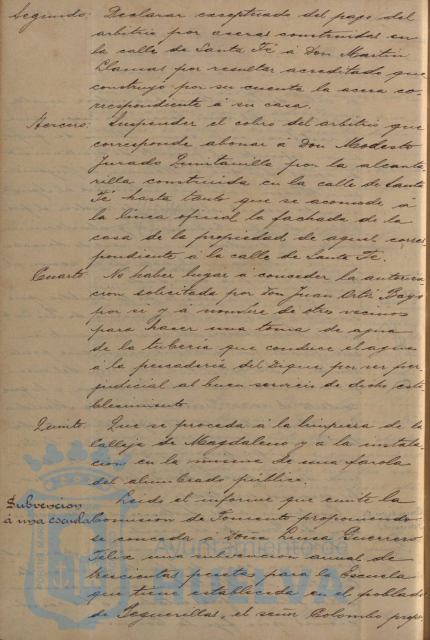 Segundo: Declarar exceptuado del pago del
arbitrio por aceras construidas en
la calle de Santa Fé á Don Martin
Llamas por resultar acreditado que
construyó por su cuenta la acera co-
rrespondiente á su casa.
Tercero: Suspender el cobro del arbitrio que
corresponde abonar á Don Modesto
Jurado Quintanilla por la alcanta-
rilla construida en la calle de Santa
Fé hasta tanto que se acomode á
la linea oficial la fachada de la
casa de la propiedad de aquel corres-
pondiente á la calle de Santa Fé.
Cuarto: No haber lugar á conceder la autoriza-
cion solicitada por Don Juan Ortiz
por si y á nombre de otros vecinos
para hacer una toma de agua
de la tuberia que conduce el agua
á la pescaderia del Dique por ser per-
judicial al buen servicio de dicho esta-
blecimiento.
Quinto: Que se proceda á la limpieza de la
calleja de Magdaleno y á la instala-
cion en la misma de una farola
del alumbrado público.
Subvencion
á una escuela
Leido el informe que emite la
Comision de Fomento proponiendo
se conceda á Doña Luisa Guerrero
Felix una subvencion anual de
trescientas pesetas para la Escuela
que tiene establecida en el poblado
de Peguerillas, el señor Colombo propu
Ayuntamiento de
HUELVA